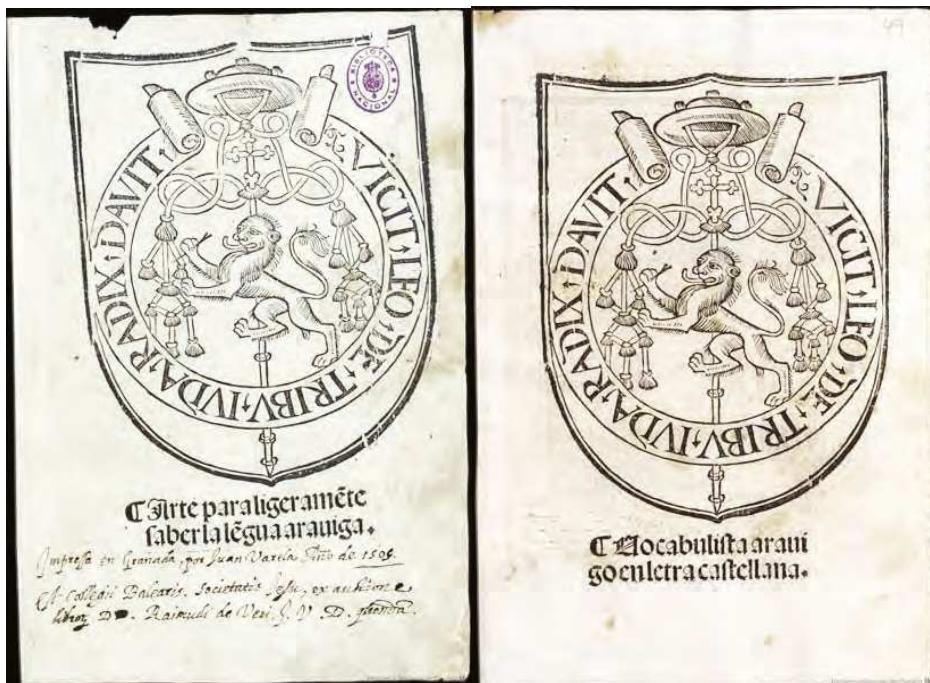 BIBLIOTECA NACIONAL
VICIT · LEO · DE · TRIBV · IVDA · RADIX · DAVIT ·
¶ Arte para ligeramẽte
saber la lẽgua arauiga.
Impressa en Granada, por Juan Varela Año de 1505.
Collegii Balearis. Societatis Jesu, ex
D. Raimudi de Veri. J. V. D.
49
VICIT · LEO · DE · TRIBV · IVDA · RADIX · DAVIT ·
¶ Vocabulista araui
go en letra castellana.